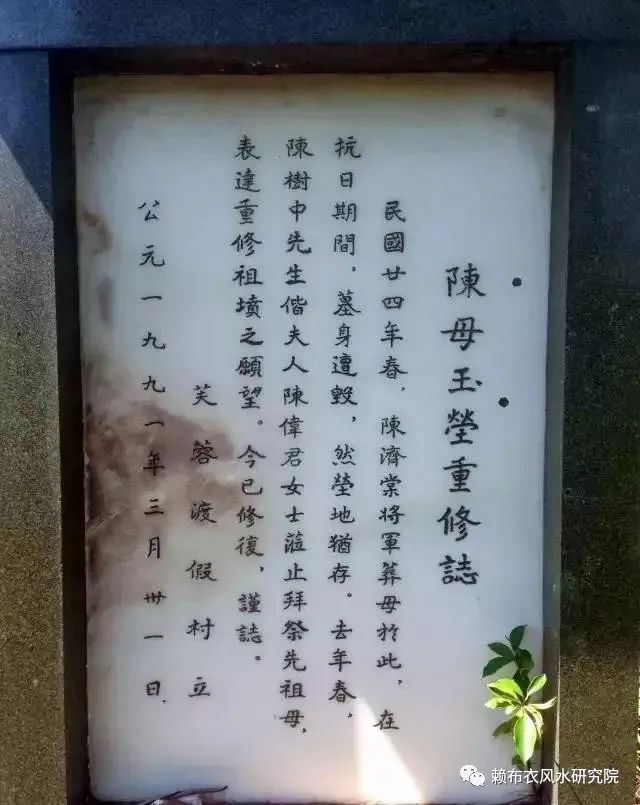 陳母玉塋重修誌
民國廿四年春，陳濟棠將軍葬母於此，在
抗日期間，墓身遭毀，然塋地猶存。去年春，
陳樹中先生偕夫人陳偉君女士蒞止拜祭先祖母，
表達重修祖墳之願望。今已修復，謹誌。
芙蓉渡假村立
公元一九九一年三月卅一日
赖布衣风水研究院